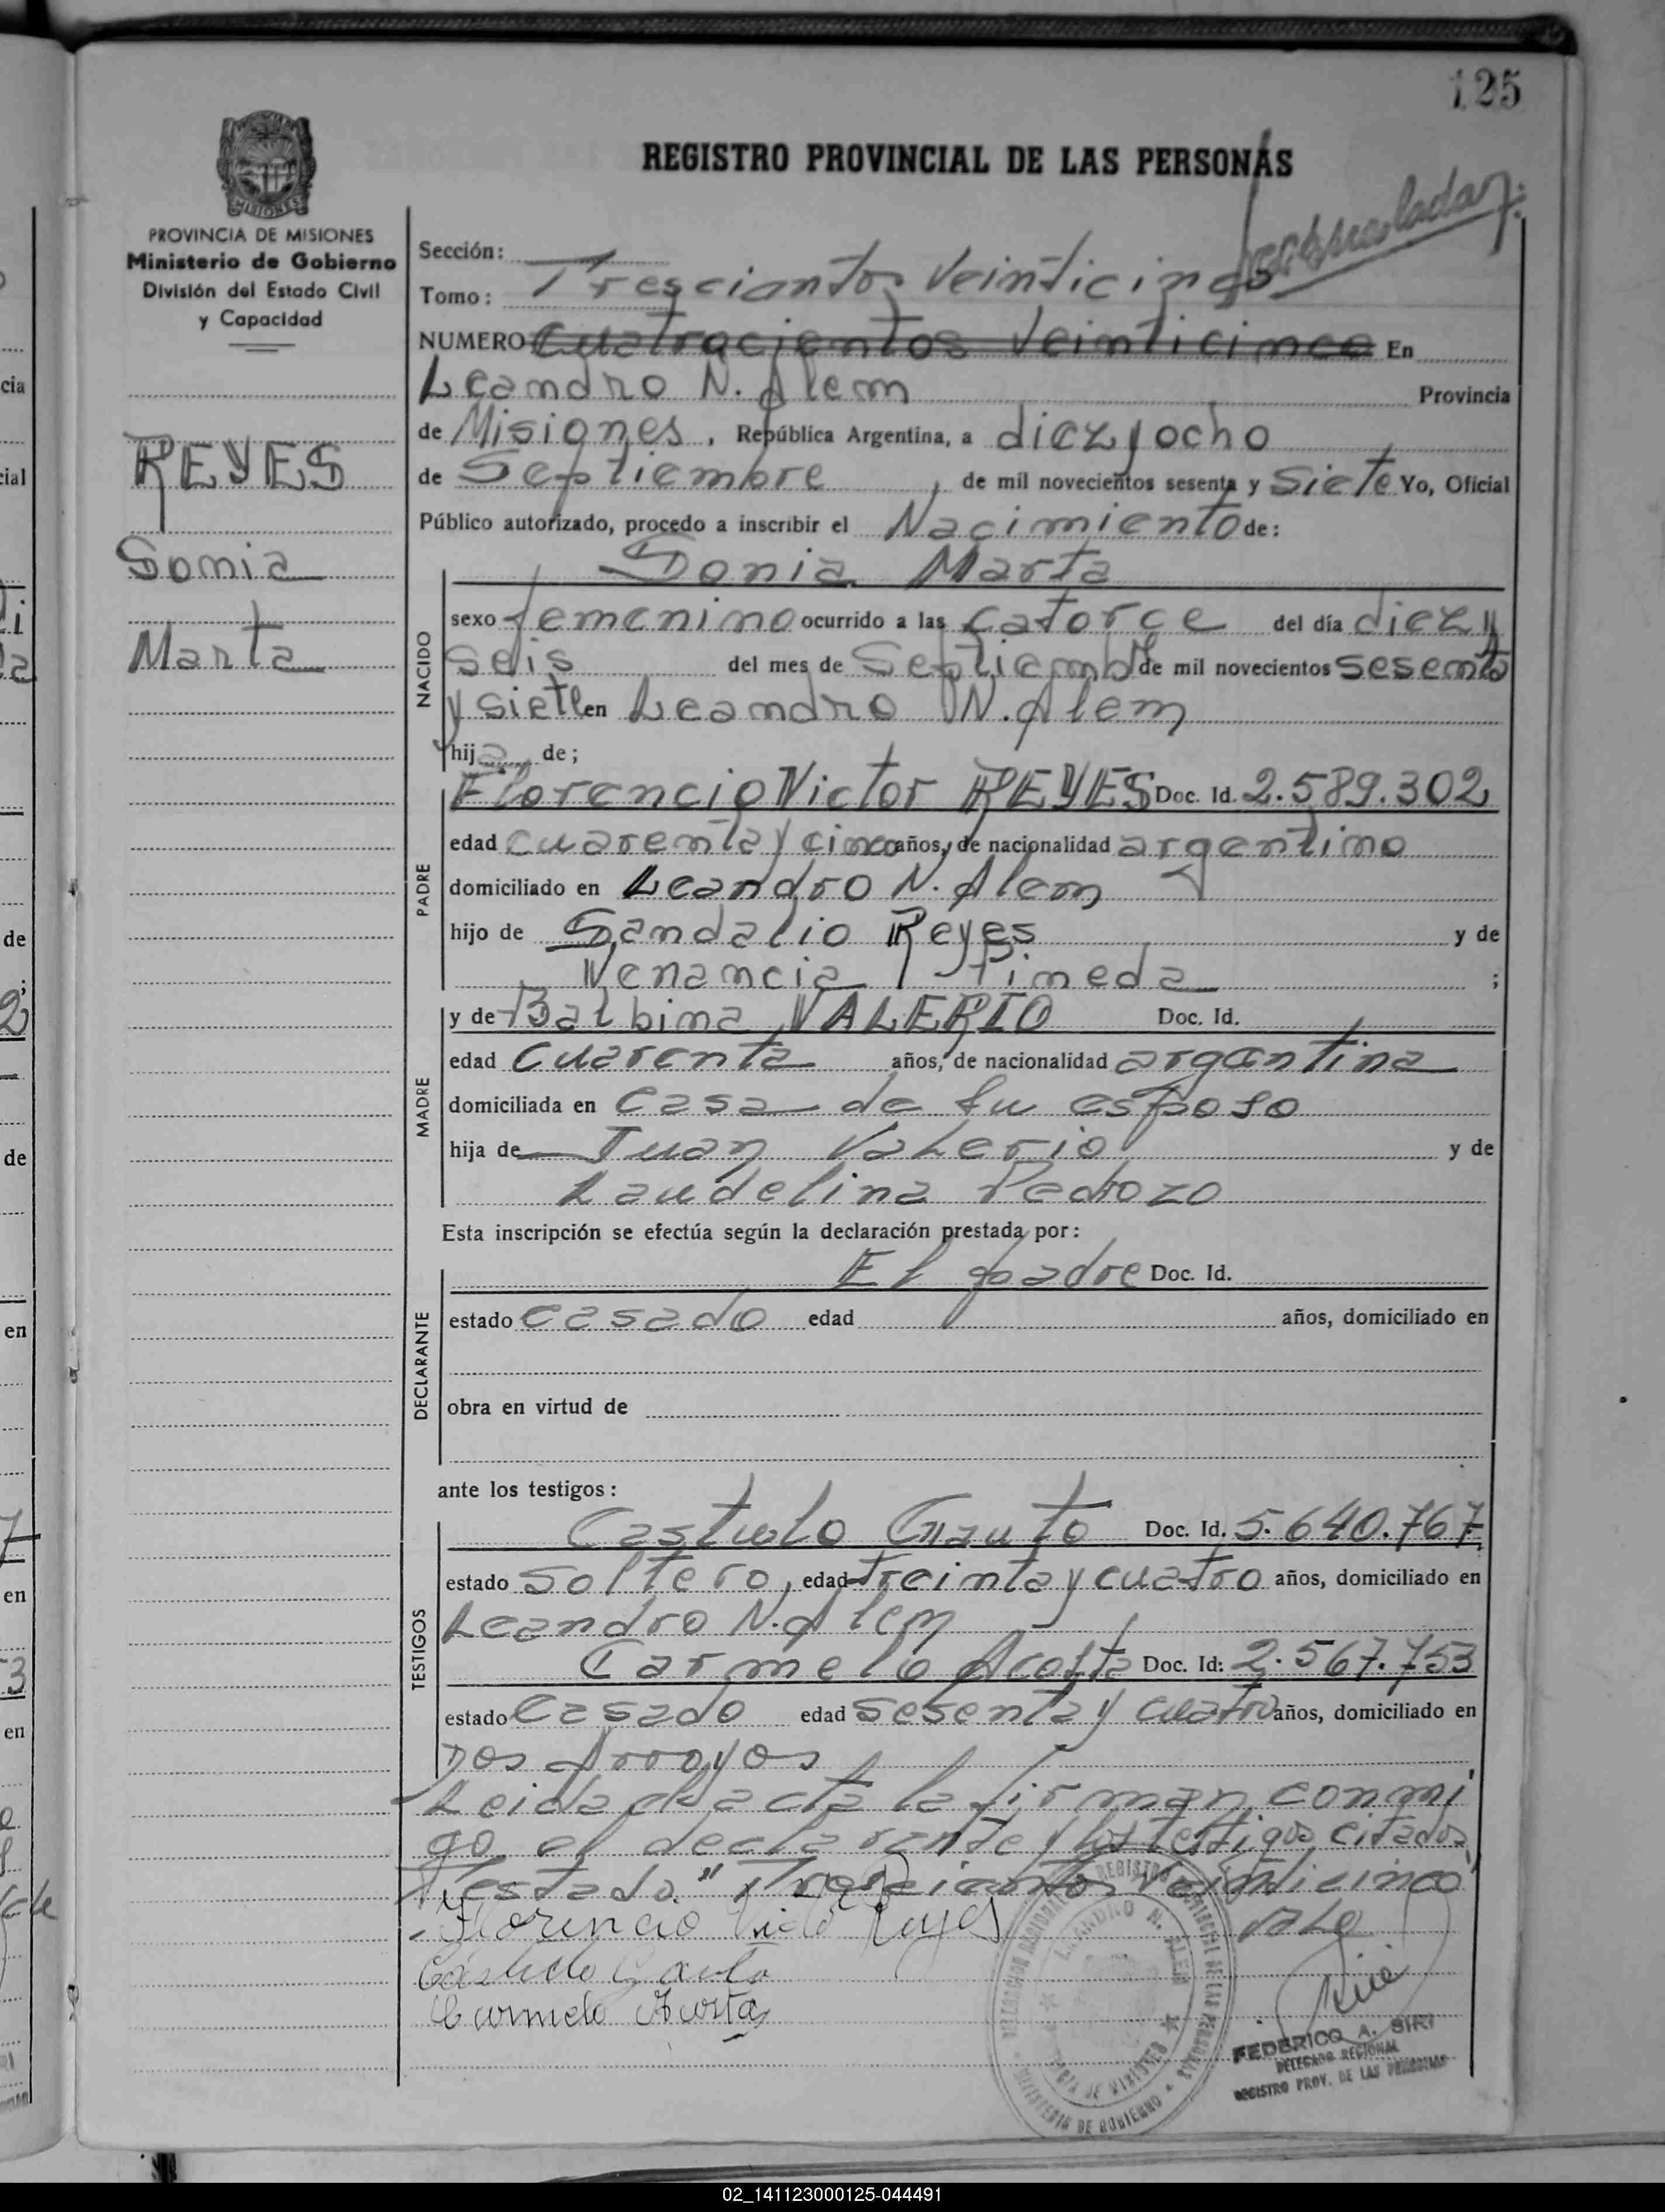 125
REGISTRO PROVINCIAL DE LAS PERSONAS
MISIONES
PROVINCIA DE MISIONES
Ministerio de Gobierno
División del Estado Civil
y Capacidad
REYES
Sonia
Marta
Sección:
Tomo: Tresciantos Veinticinco
NUMERO Cuatrocientos Veinticinco En
Leandro N. Alem Provincia
de Misiones, República Argentina, a diez y ocho
de Septiembre, de mil novecientos sesenta y Siete Yo, Oficial
Público autorizado, procedo a inscribir el Nacimiento de:
Sonia Marta
NACIDO
sexo femenino ocurrido a las catorce del día diez y
seis del mes de Septiembre de mil novecientos sesenta
y siete en Leandro N. Alem
hija de;
PADRE
Florencio Victor REYES Doc. Id. 2.589.302
edad cuarenta y cinco años, de nacionalidad argentino
domiciliado en Leandro N. Alem
hijo de Sandalio Reyes y de
Venancia Pineda ;
MADRE
y de Balbina VALERIO Doc. Id.
edad cuarenta años, de nacionalidad argentina
domiciliada en casa de su esposo
hija de Juan Valerio y de
Laudelina Pedrozo
Esta inscripción se efectúa según la declaración prestada por:
DECLARANTE
El padre Doc. Id.
estado casado edad años, domiciliado en
obra en virtud de
ante los testigos:
TESTIGOS
Castulo Gauto Doc. Id. 5.640.767
estado soltero, edad treinta y cuatro años, domiciliado en
Leandro N. Alem
Carmelo Acosta Doc. Id: 2.567.753
estado casado edad sesenta y cuatro años, domiciliado en
Dos Arroyos
Leida el acta la firman conmi
go el declarante y los testigos citados
Testado "Tresciantos Veinticinco"
Vale
Florencio Victor Reyes
Castulo Gauto
Carmelo Acosta
LEANDRO N. ALEM
MINISTERIO DE GOBIERNO
FEDERICO A. SIRI
DELEGADO REGIONAL
REGISTRO PROV. DE LAS PERSONAS
02_141123000125-044491